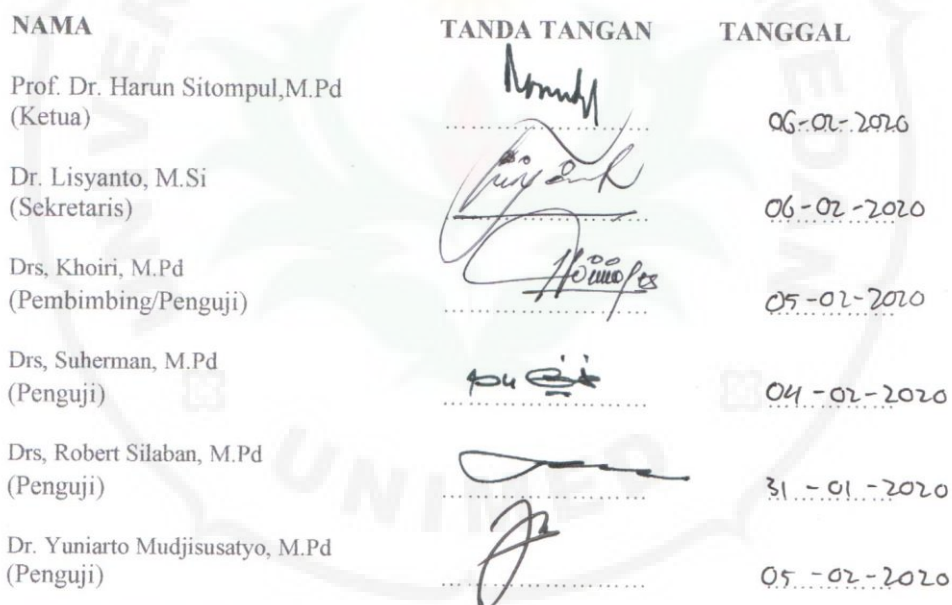 NAMA TANDA TANGAN TANGGAL
Prof. Dr. Harun Sitompul,M.Pd
(Ketua) 06-02-2020
Dr. Lisyanto, M.Si
(Sekretaris) 06-02-2020
Drs, Khoiri, M.Pd
(Pembimbing/Penguji) 05-02-2020
Drs, Suherman, M.Pd
(Penguji) 04-02-2020
Drs, Robert Silaban, M.Pd
(Penguji) 31-01-2020
Dr. Yuniarto Mudjisusatyo, M.Pd
(Penguji) 05-02-2020
UNIMED